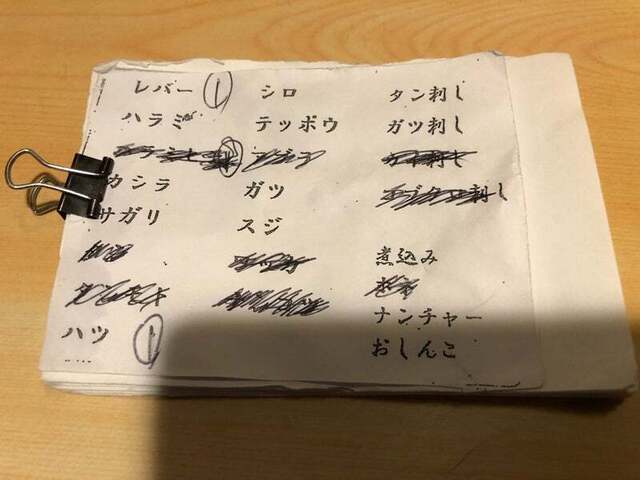 レバー ① シロ タン刺し
ハラミ テッポウ ガツ刺し
① 刺し
カシラ ガツ 刺し
サガリ スジ
煮込み
ハツ ① ナンチャー
おしんこ